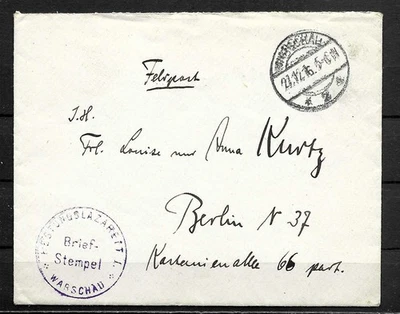 WARSCHAU
27.12.16. 5-6 N
Feldpost
I.H.
Frl. Louise und Anna Kurtz
Berlin N 37
Kastanienallee 66 part.
FESTUNGSLAZARETT I.
Brief-
Stempel
* WARSCHAU *